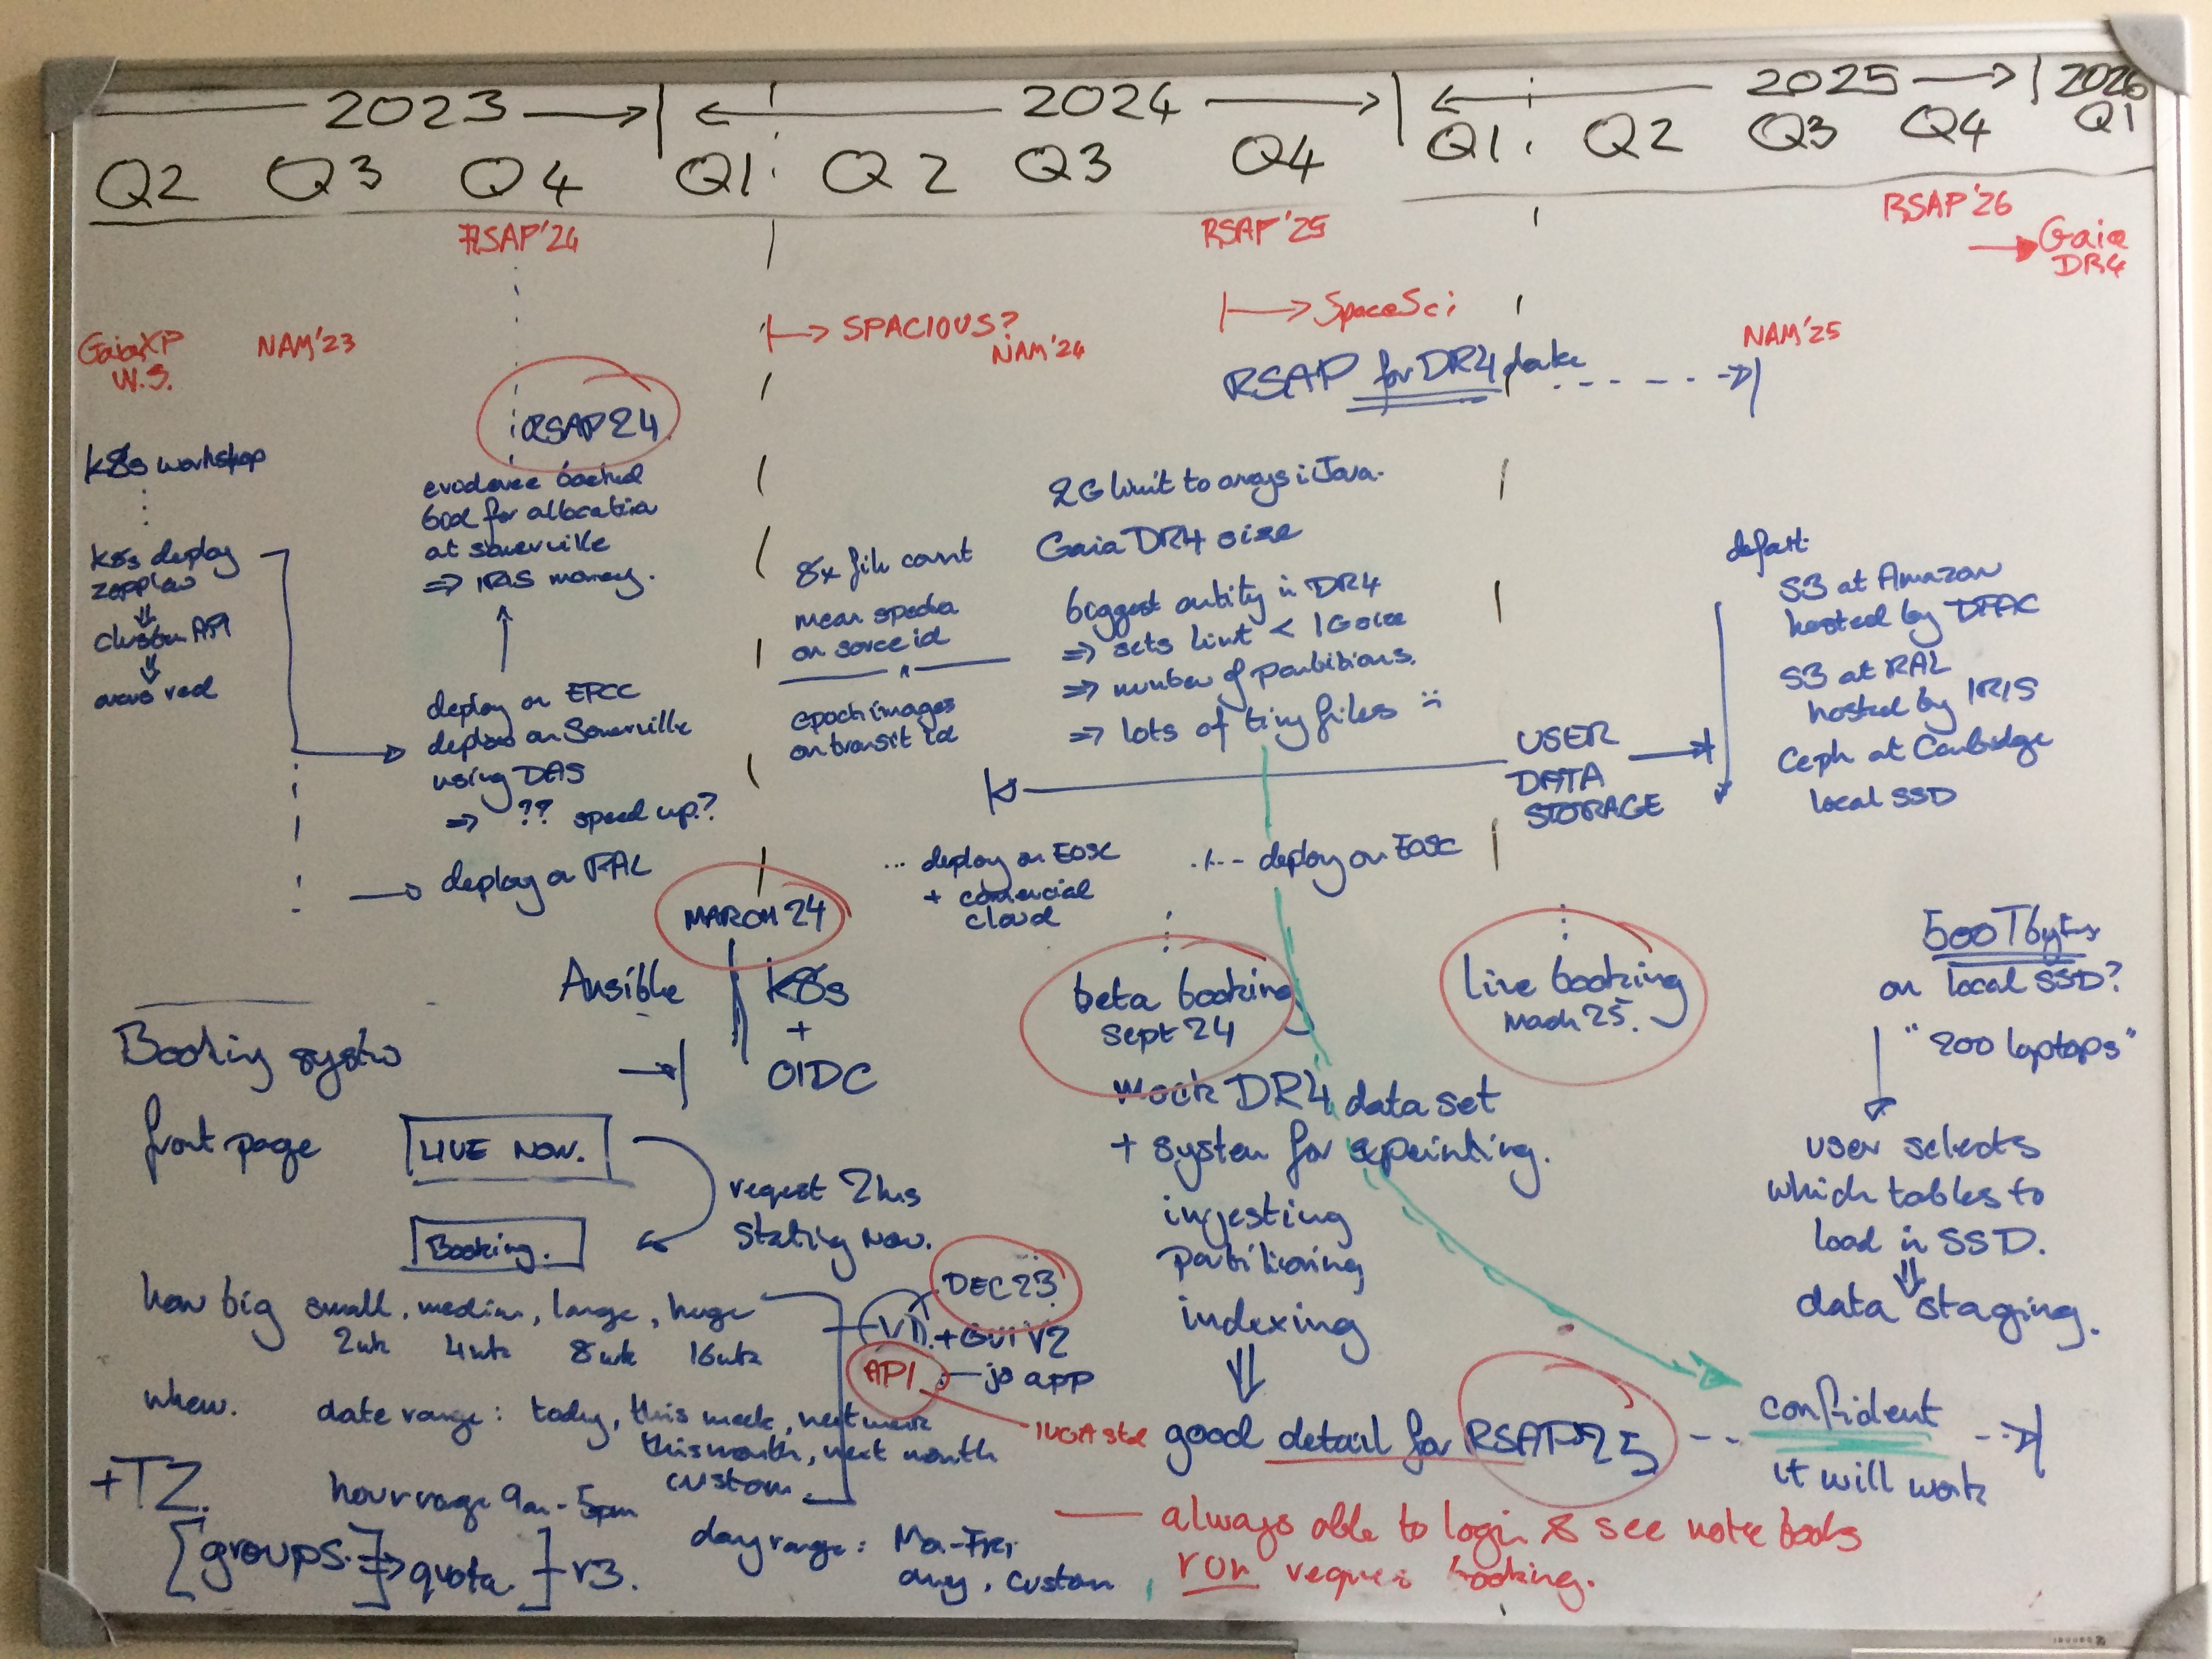 2023 2024 2025 2026
Q2 Q3 Q4 Q1 Q2 Q3 Q4 Q1 Q2 Q3 Q4 Q1
RSAP'24 RSAP'25 RSAP'26
Gaia
DR4
GaiaXP
W.S.
NAM'23
SPACIOUS?
NAM'24
SpaceSci
NAM'25
RSAP for DR4 data
RSAP24
evidence backed
for allocation
at somerville
⇒ IRIS money.
k8s workshop
k8s deploy
zeppelin
⇓
cluster API
⇓
deploy on EPCC
deploy on Somerville
using DAS
⇒ ?? speed up?
deploy on RAL
8x file count
mean spectra
on source id
epoch images
on transit id
2G limit to arrays i Java.
Gaia DR4 size
biggest entity in DR4
⇒ sets limit < 1G size
⇒ number of partitions.
⇒ lots of tiny files
USER
DATA
STORAGE
S3 at Amazon
hosted by DPAC
S3 at RAL
hosted by IRIS
Ceph at Cambridge
local SSD
... deploy on EOSC
+ comercial
cloud
deploy on EOSC
MARCH 24
Ansible
k8s
+
OIDC
beta booking
Sept 24
live booking
March 25.
500Tbytes
on local SSD?
"200 laptops"
user selects
which tables to
load in SSD.
⇓
data staging.
mock DR4 data set
+ system for
ingesting
partitioning
indexing
⇓
good detail for RSAP25
confident
it will work
Booking system
front page
LIVE NOW.
Booking.
request 2hrs
starting now.
how big small, medium, large, huge
2wk 4wk 8wk 16wk
DEC 23
V1. + GUI V2
API
js app
IVOA std
when. date range: today, this week, next week
this month, next month
custom
+TZ.
hour range 9am - 5pm
day range: Mon-Fri
any, custom
[groups.] ⇒ quota ] v3.
always able to login & see note books
run requires booking.